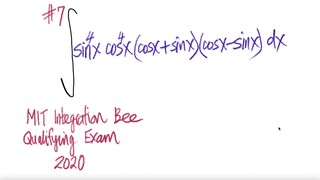 #7
∫ sin⁴x cos⁴x (cosx+sinx)(cosx-sinx) dx
MIT Integration Bee
Qualifying Exam
2020